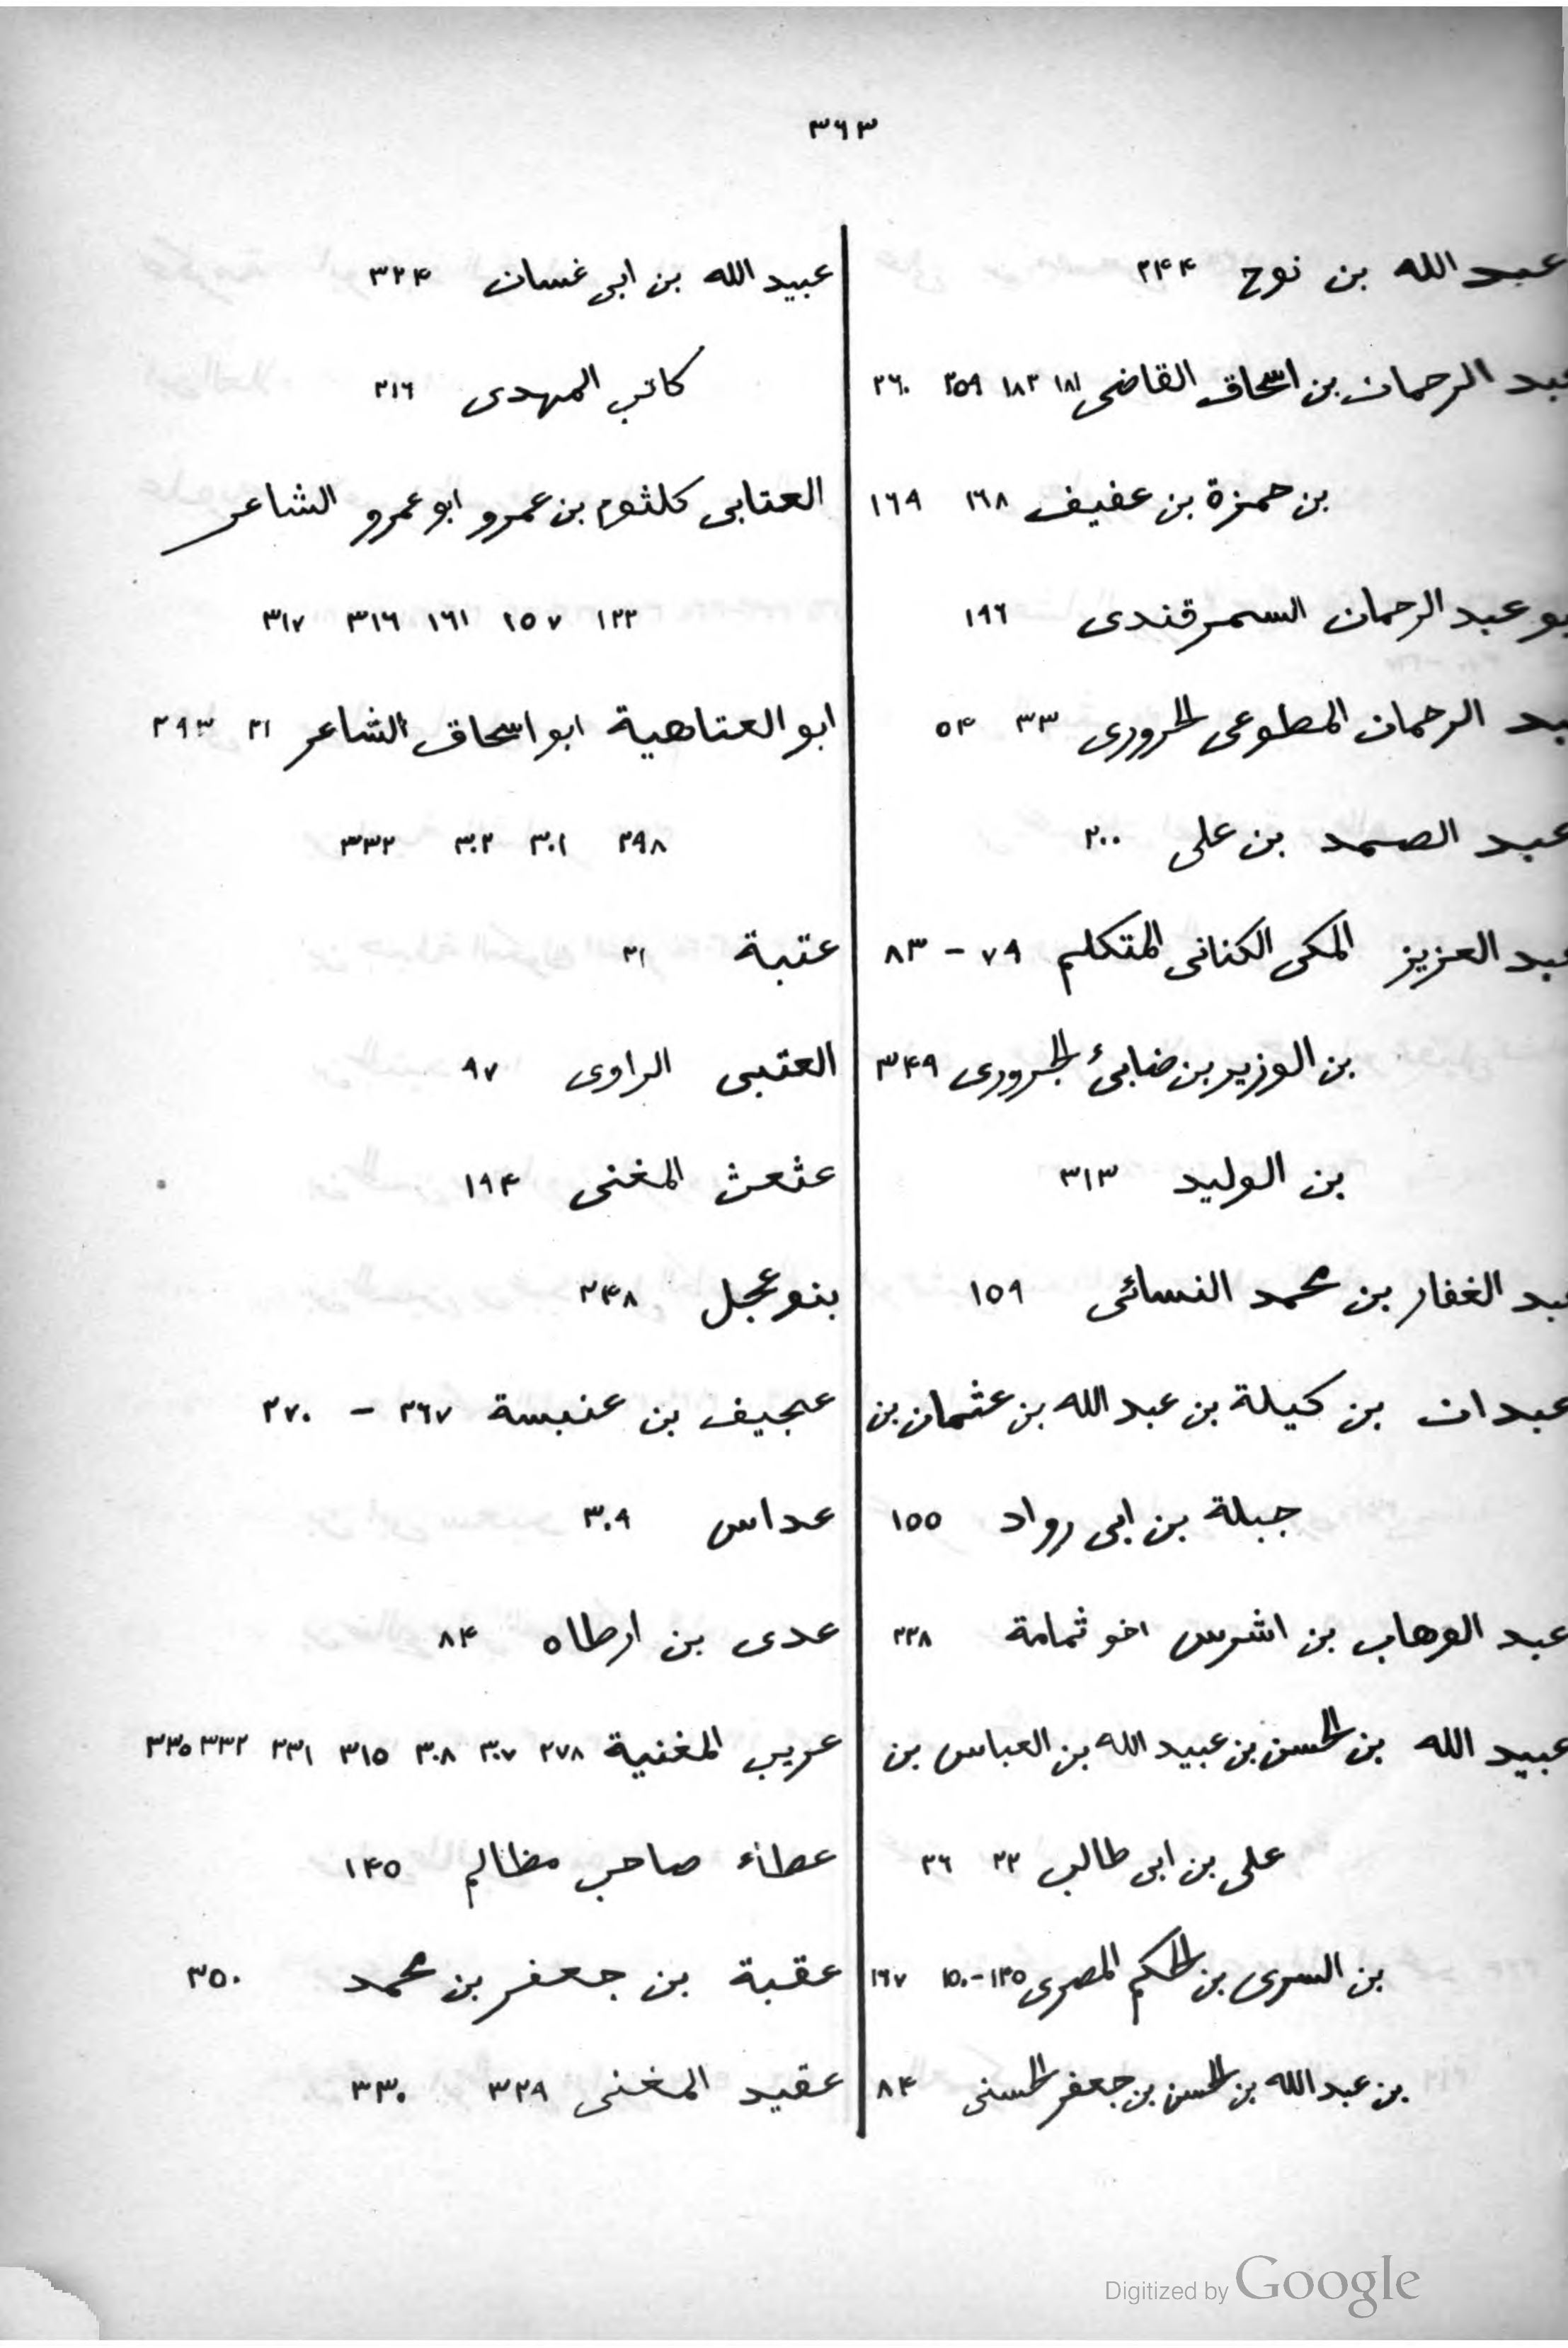 ٣٦٣
عبد الله بن نوح ٢٤٤
عبد الرحمان بن اسحاق القاضى ١٨١ ١٨٢ ٢٥٩ ٢٦٠
بن حمزة بن عفيف ١٦٨ ١٦٩
بو عبد الرحمان السمرقندى ١٩٦
بد الرحمان المطوعى الحرورى ٣٣ ٥٤
عبد الصمد بن على ٢٠٠
عبد العزيز المكى الكنانى المتكلم ٧٩ - ٨٣
بن الوزير بن ضابئ الجرورى ٣٤٩
بن الوليد ٣١٣
عبد الغفار بن محمد النسائى ١٥٩
عبدان بن كيلة بن عبد الله بن عثمان بن
جبلة بن ابى رواد ١٥٥
عبد الوهاب بن اشرس اخو ثمامة ٢٣٨
عبيد الله بن الحسن بن عبيد الله بن العباس بن
على بن ابى طالب ٢٣ ٢٦
بن السرى بن الحكم المصرى ١٤٥-١٥٠ ١٦٧
بن عبد الله بن الحسن بن جعفر الحسنى ٨٤
عبيد الله بن ابى غسان ٣٢٤
كاتب المهدى ٢١٦
العتابى كلثوم بن عمرو ابو عمرو الشاعر
١٢٣ ١٥٧ ١٦١ ٣١٦ ٣١٧
ابو العتاهية ابو اسحاق الشاعر ٢١ ٢٩٣
٢٩٨ ٣٠١ ٣٠٢ ٣٣٢
عتبة ٢١
العتبى الراوى ٩٧
عثعث المغنى ١٩٤
بنو عجل ٢٤٨
عجيف بن عنبسة ٢٦٧ - ٢٧٠
عداس ٣٠٩
عدى بن ارطاه ٨٤
عريب المغنية ٢٧٨ ٣٠٧ ٣٠٨ ٣١٥ ٣٣١ ٣٣٢ ٣٣٥
عطاء صاحب مظالم ١٤٥
عقبة بن جعفر بن محمد ٣٥٠
عقيد المغنى ٣٢٩ ٣٣٠
Digitized by Google